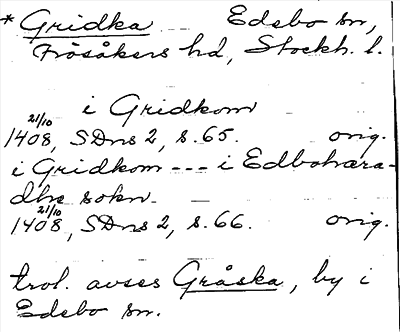 * Gridka Edebo sn,
Frösåkers hd, Stockh. l.
i Gridkom
21/10
1408, SDns 2, s. 65. orig.
i Gridkom --- i Edbohæra-
dhe sokn.
21/10
1408, SDns 2, s. 66. orig.
trol. avses Gråska, by i
Edebo sn.